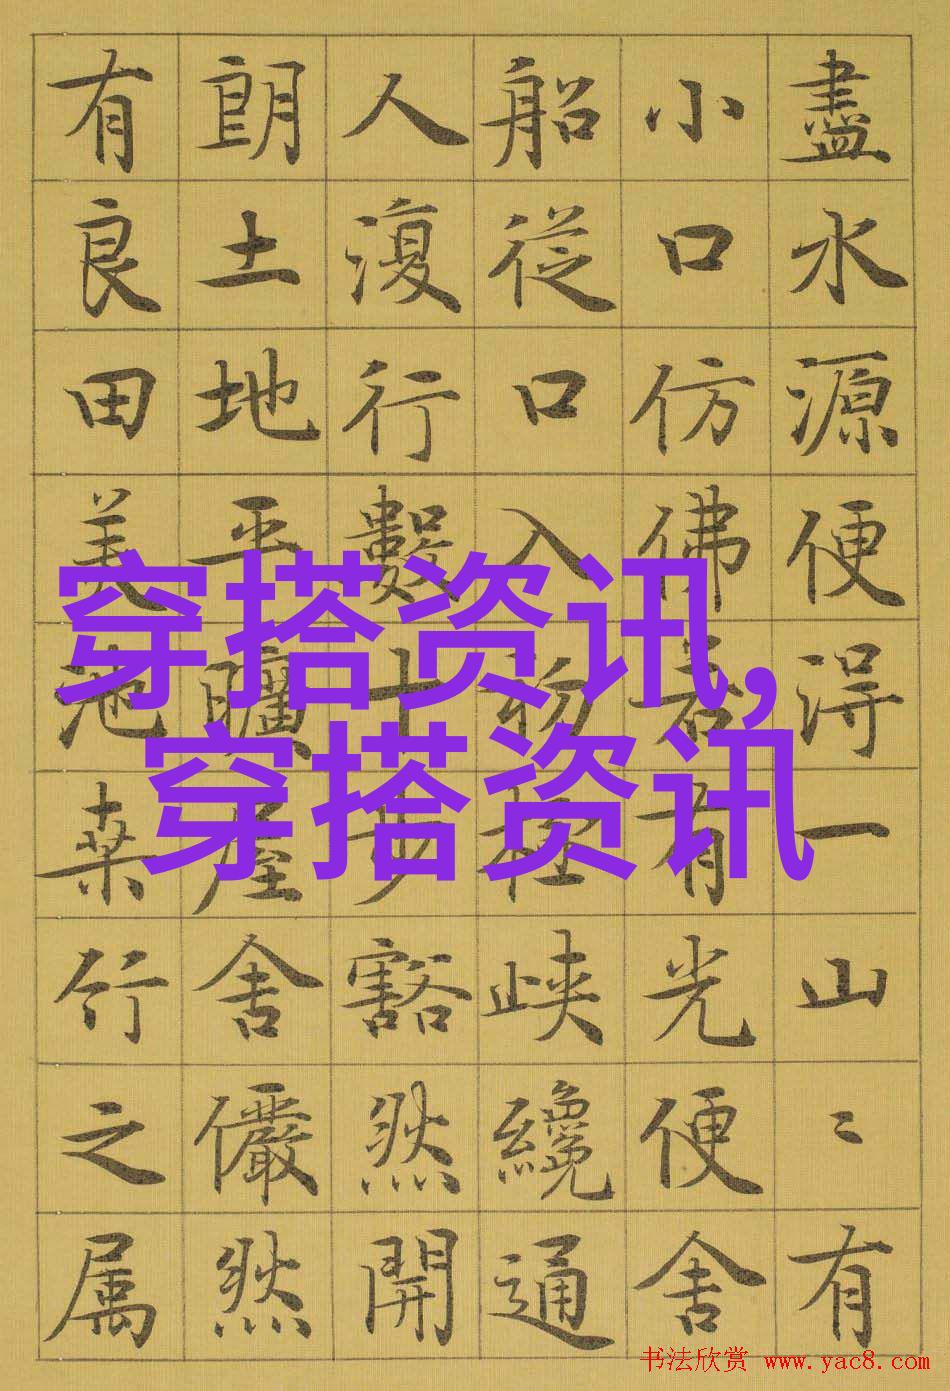 盡水源便淂一山〻有
小口仿佛若有光便舍
船從口入初極峽纔通
人復行數十步豁然開
朗土地平曠屋舍儼然
有良田美池桑竹之属
穿搭资讯,
穿搭资讯
书法欣赏 www.yac8.com